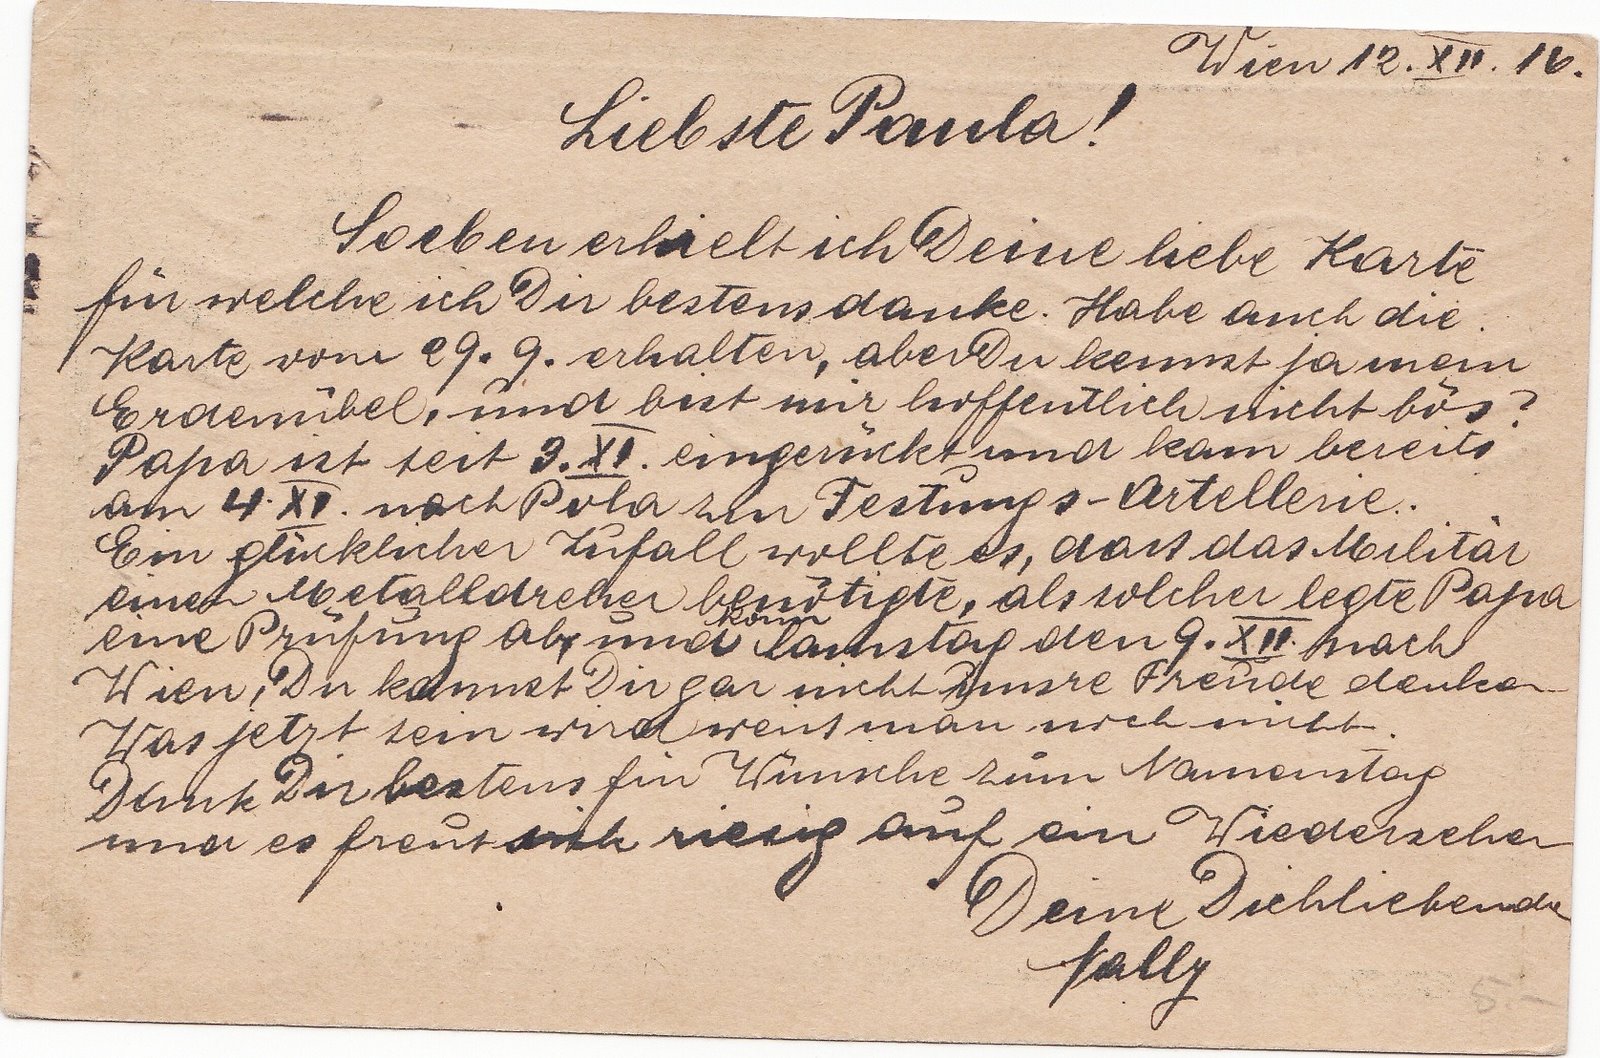 Wien 12. XII. 16.
Liebste Paula!
Soeben erhielt ich Deine liebe Karte
für welche ich Dir bestens danke. Habe auch die
Karte vom 29. 9. erhalten, aber Du kennst ja mein
Erdenübel, und bist mir hoffentlich nicht bös?
Papa ist seit 3. XI. eingerückt und kam bereits
am 4. XI. nach Pola zur Festungs-Artellerie.
Ein glücklicher Zufall wollte es, dass das Militär
einen Metalldreher benötigte, als solcher legte Papa
eine Prüfung ab, und kam Samstag den 9. XII. nach
Wien, Du kannst Dir gar nicht unsre Freude denken
Was jetzt sein wird weiss man noch nicht.
Dank Dir bestens für Wünsche zum Namenstag
und es freut sich riesig auf ein Wiedersehen
Deine Dichliebende
Vally
5.-